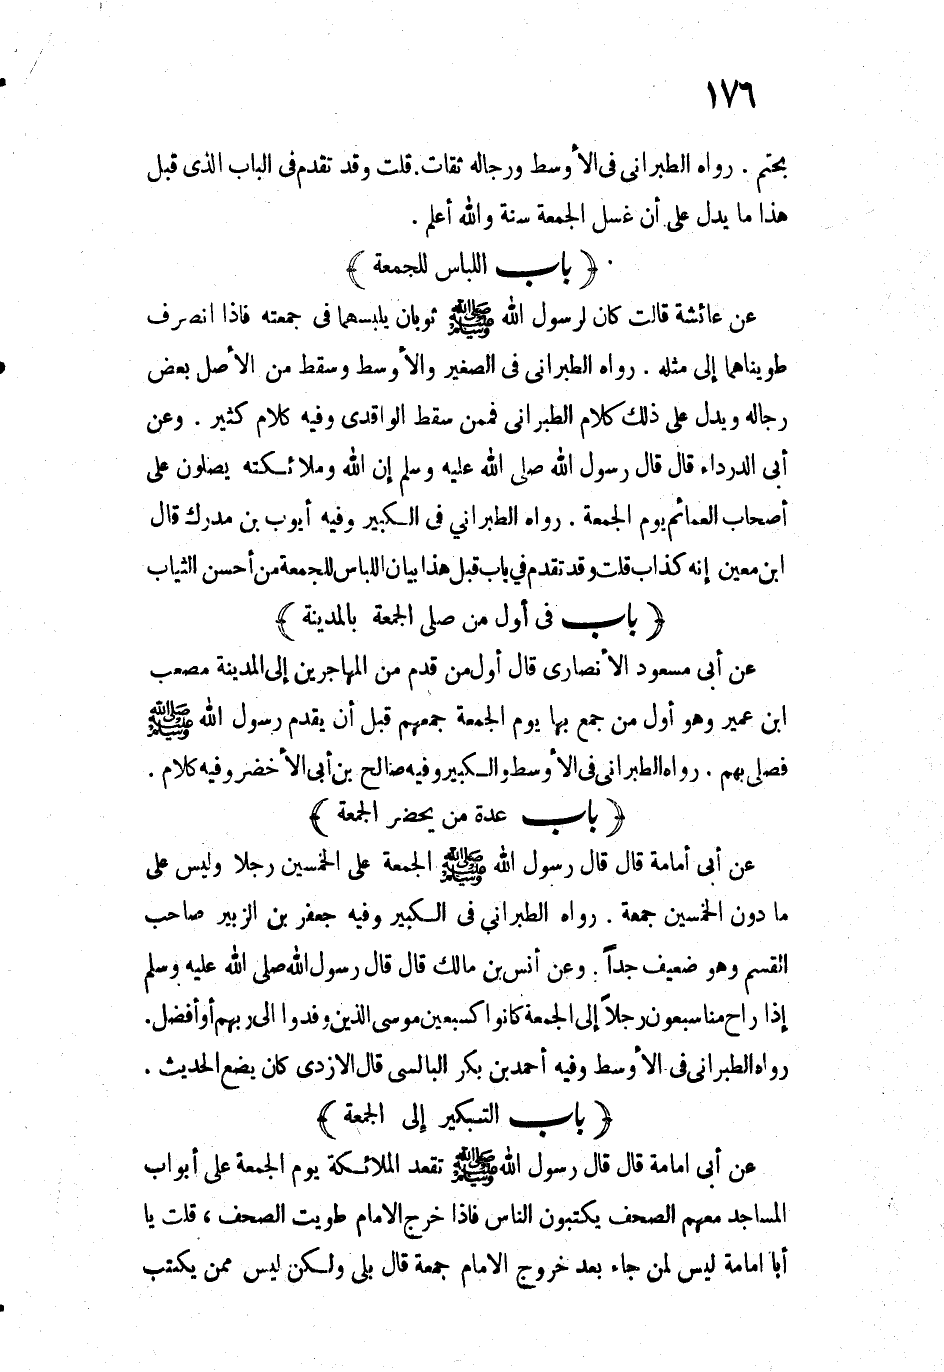 ١٧٦
بحتم . رواه الطبرانى فى الأوسط ورجاله ثقات. قلت وقد تقدم فى الباب الذى قبل
هذا ما يدل على أن غسل الجمعة سنة والله أعلم .
﴿ باب اللباس للجمعة ﴾
عن عائشة قالت كان لرسول الله ﷺ ثوبان يلبسهما فى جمعته فاذا انصرف
طويناهما إلى مثله . رواه الطبرانى فى الصغير والأوسط وسقط من الأصل بعض
رجاله ويدل على ذلك كلام الطبرانى فممن سقط الواقدى وفيه كلام كثير . وعن
أبى الدرداء قال قال رسول الله صلى الله عليه وسلم إن الله وملائكته يصلون على
أصحاب العمائم يوم الجمعة . رواه الطبراني فى الكبير وفيه أيوب بن مدرك قال
ابن معين إنه كذاب قلت وقد تقدم في باب قبل هذا بيان اللباس للجمعة من أحسن الثياب
﴿ باب فى أول من صلى الجمعة بالمدينة ﴾
عن أبى مسعود الأنصارى قال أول من قدم من المهاجرين إلى المدينة مصعب
ابن عمير وهو أول من جمع بها يوم الجمعة جمعهم قبل أن يقدم رسول الله ﷺ
فصلى بهم . رواه الطبرانى فى الأوسط والكبير وفيه صالح بن أبى الأخضر وفيه كلام .
﴿ باب عدة من يحضر الجمعة ﴾
عن أبى أمامة قال قال رسول الله ﷺ الجمعة على الخمسين رجلا وليس على
ما دون الخمسين جمعة . رواه الطبراني فى الكبير وفيه جعفر بن الزبير صاحب
القسم وهو ضعيف جداً . وعن أنس بن مالك قال قال رسول الله صلى الله عليه وسلم
إذا راح منا سبعون رجلاً إلى الجمعة كانوا كسبعين موسى الذين وفدوا الى ربهم أو أفضل.
رواه الطبرانى فى الأوسط وفيه أحمد بن بكر البالسى قال الازدى كان يضع الحديث .
﴿ باب التبكير إلى الجمعة ﴾
عن أبى امامة قال قال رسول الله ﷺ تقعد الملائكة يوم الجمعة على أبواب
المساجد معهم الصحف يكتبون الناس فاذا خرج الامام طويت الصحف ، قلت يا
أبا امامة ليس لمن جاء بعد خروج الامام جمعة قال بلى ولكن ليس ممن يكتب